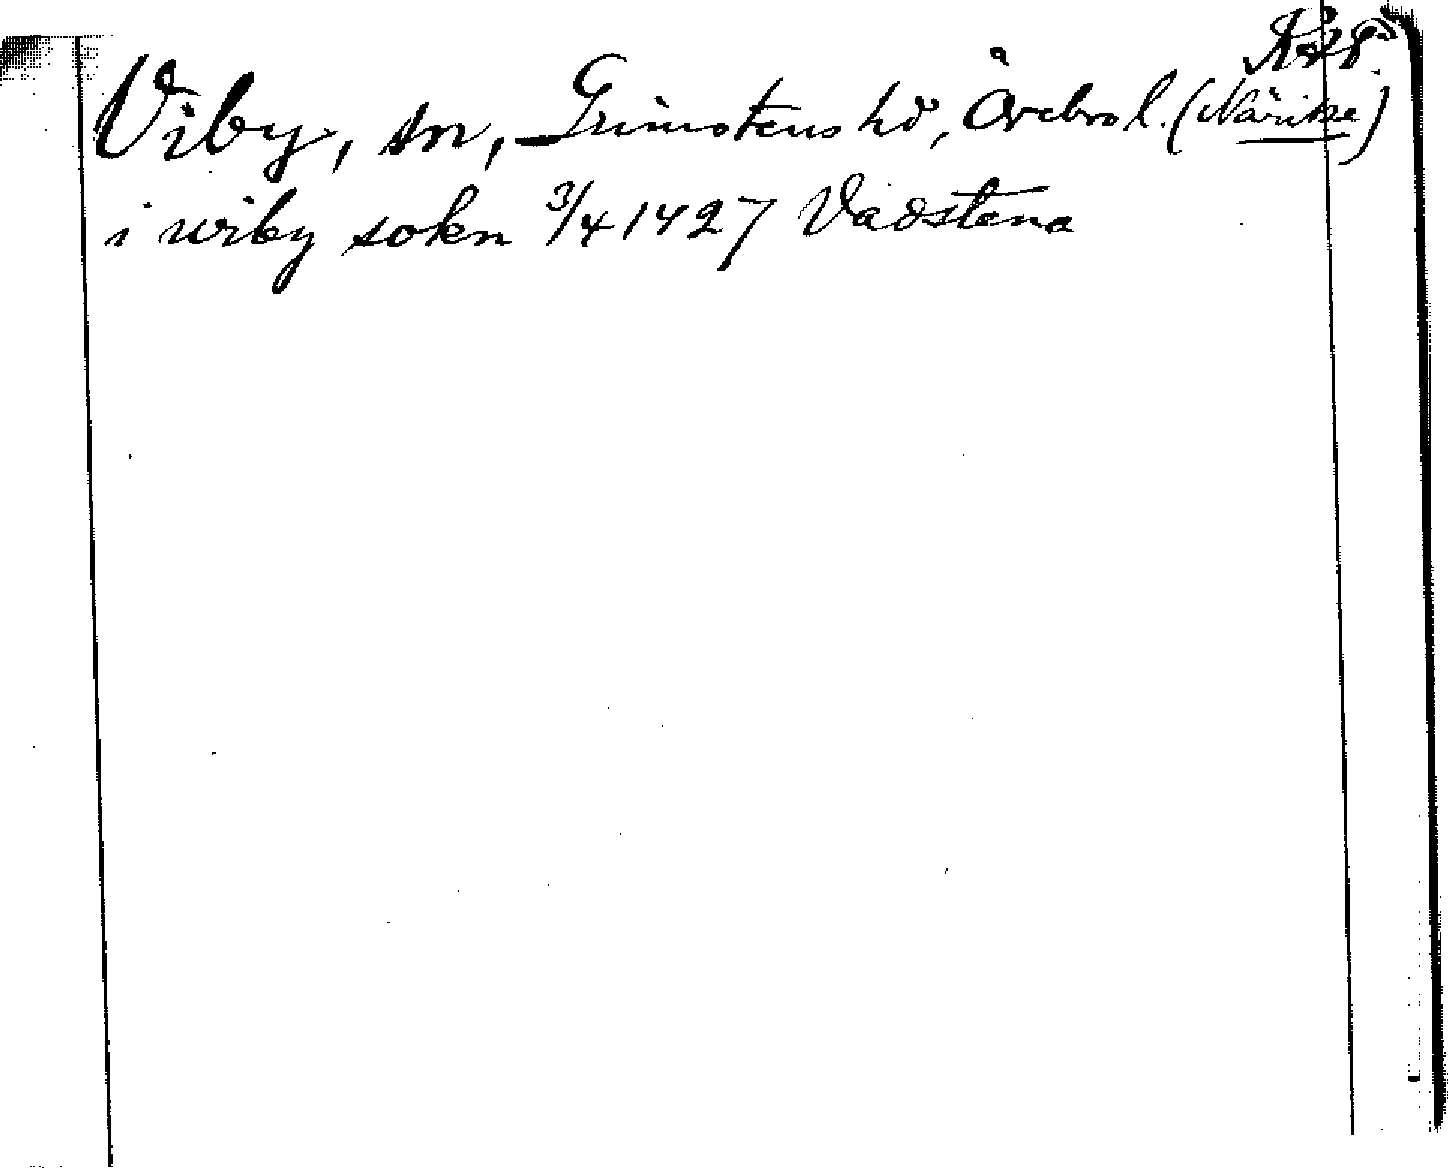 Viby, sn, Grimstens hd, Örebro l. (Närike)
i wiby sokn 3/4 1427 Vadstena